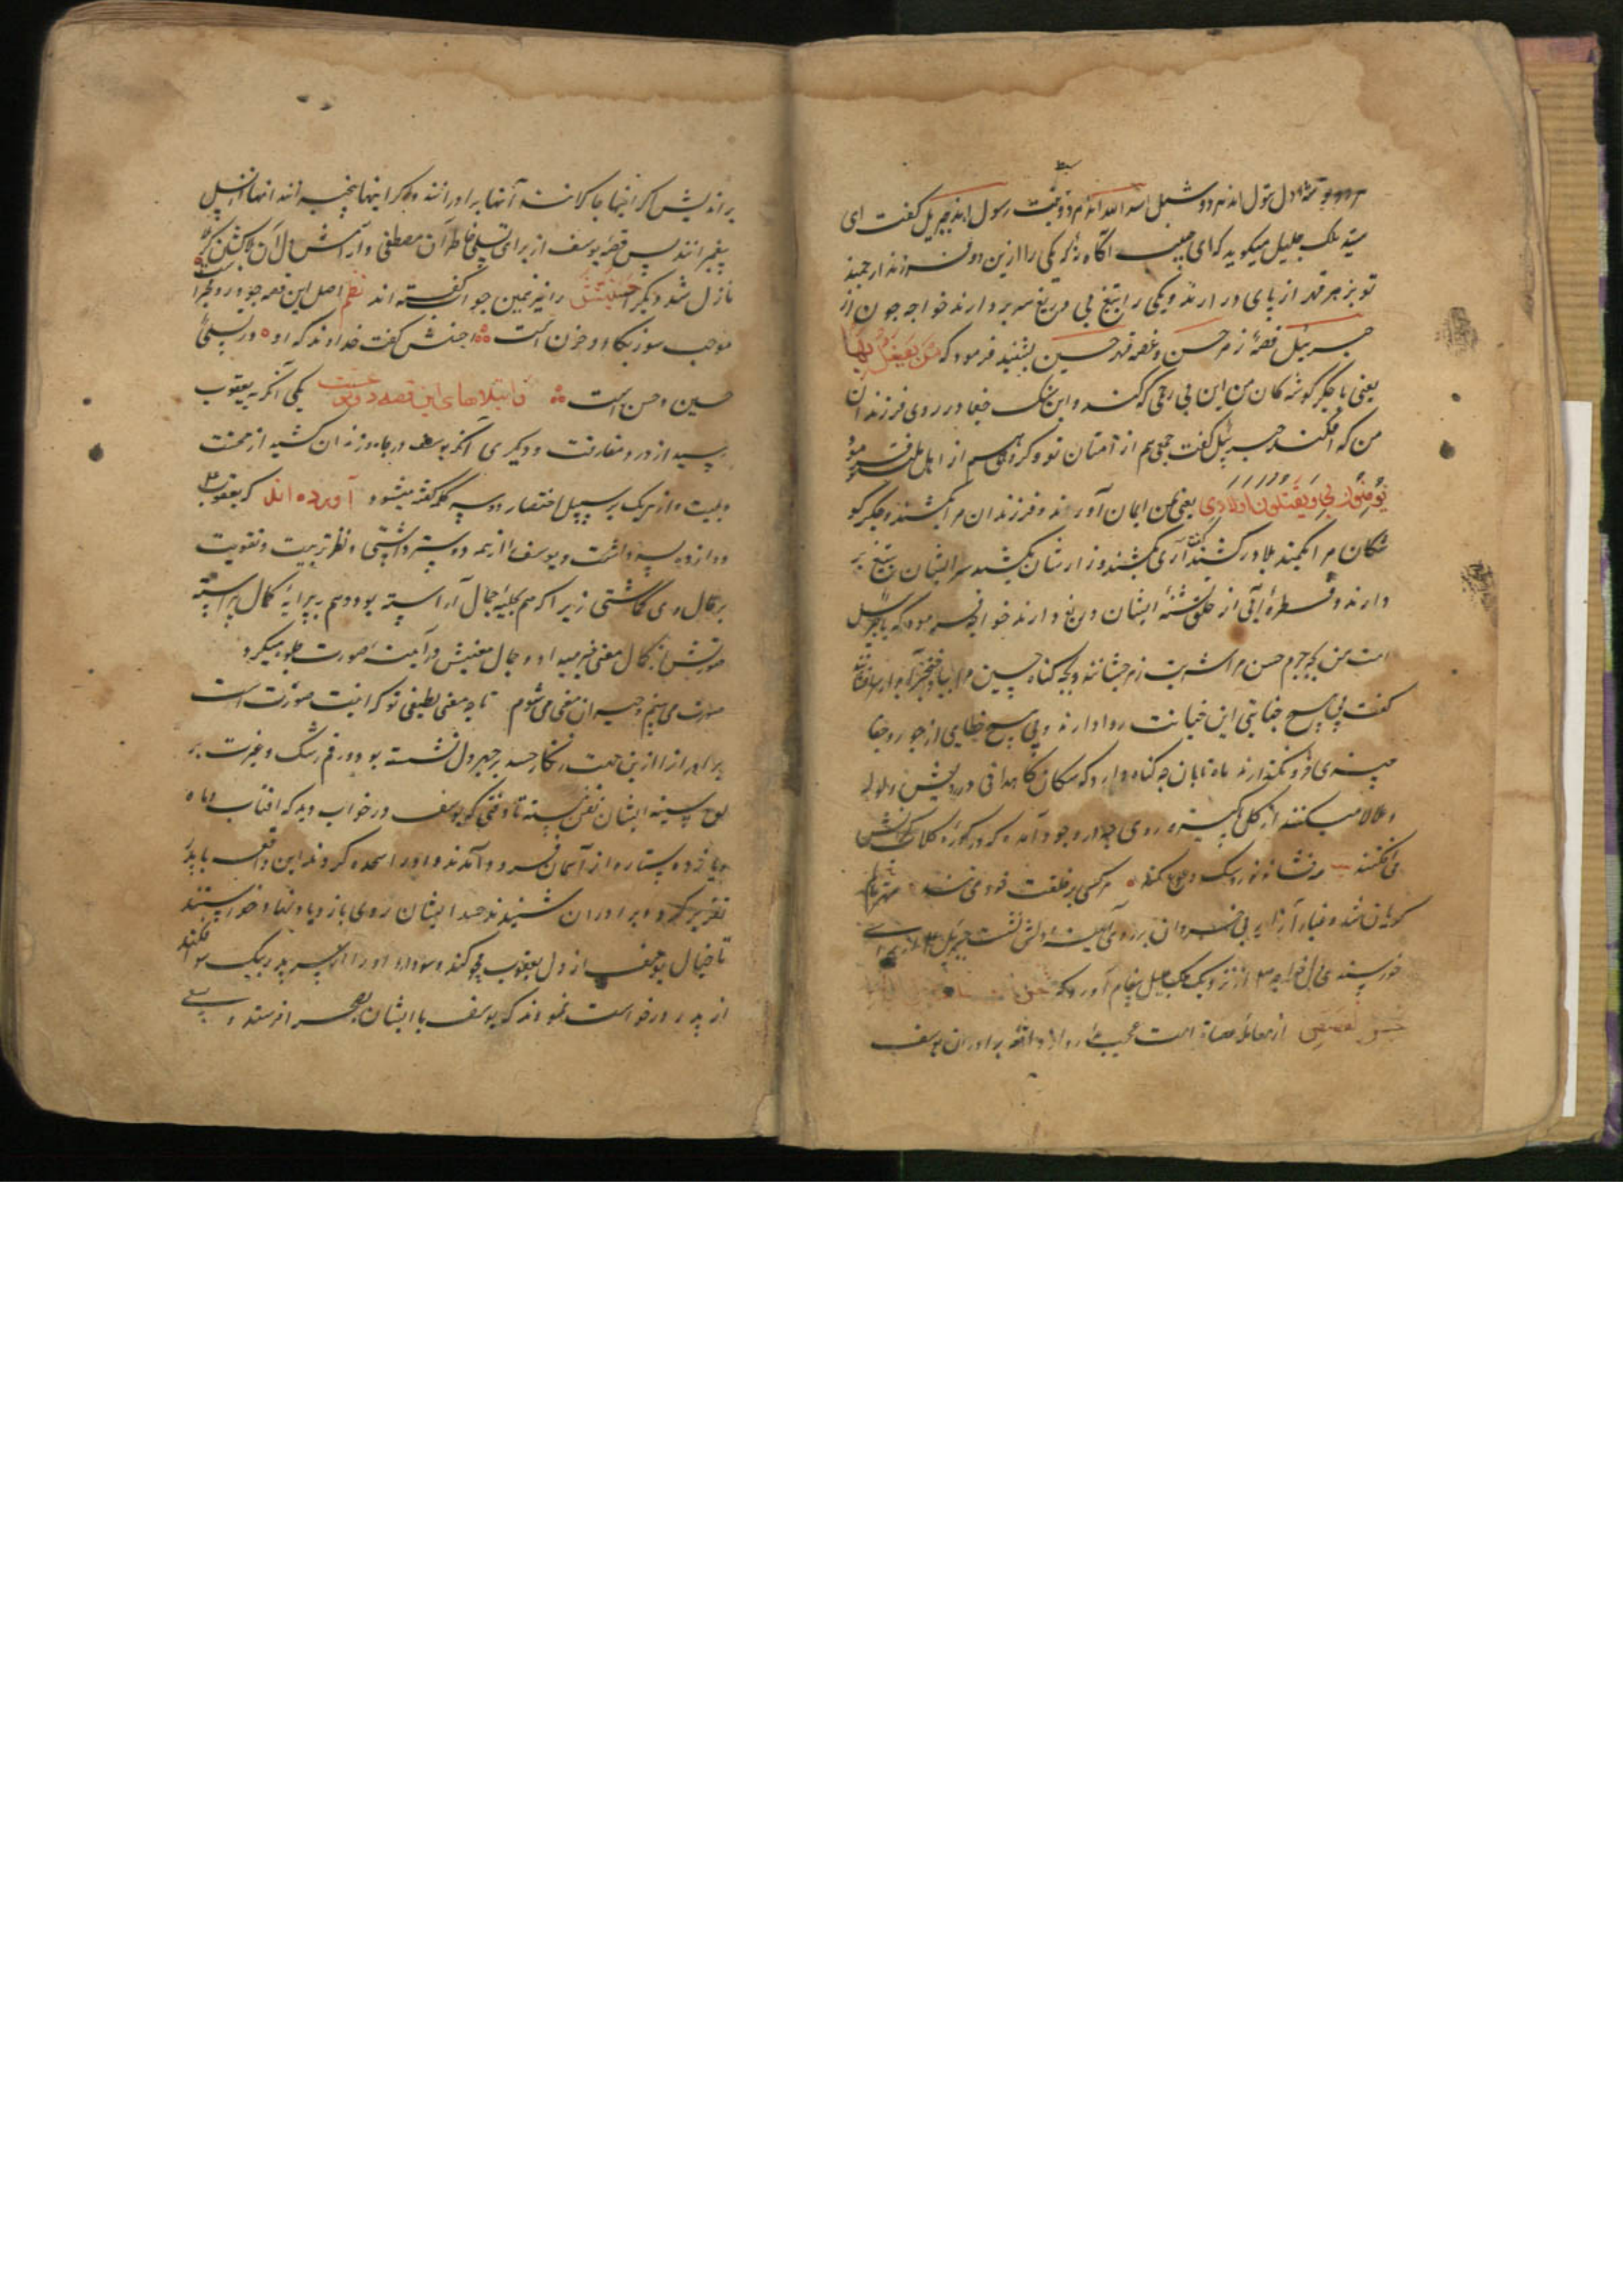 سید ملک جلیل میگوید که ای حبیب آگاه باش که یکی را ازین دو فرزند ارجمند
تو بزهر قهر از پای در آرند و یکی را بتیغ بی دریغ سر بردارند خواجه چون از
جبرئیل قصهٔ زهر حسن و غصه قهر حسین بشنید فرمود که من یفعل بهما
یعنی با جگر گوشه کان من این بی رحمی که کند و این سنگ جفا در روی فرزندان
من که افکند جبرئیل گفت جمعی هم از امتان تو و گروهی هم از اهل ملت فرمود
یؤمنون بی و یقتلون اولادی یعنی بمن ایمان آورند و فرزندان مرا بکشند و جگر گو
شکان مرا بکمند بلا درکشند گفت آری بکشند و زارشان بکشند سر ایشان بتیغ بر
دارند و قطرهٔ آبی از حلق تشنهٔ ایشان دریغ دارند خواجه فرمود که یا جبرئیل
امت من بچه جرم حسن را شربت زهر چشانند و بچه گناه حسین مرا
گفت بی هیچ جنایتی این خیانت روا دارند و بی هیچ خطایی از جور و جفا
چیزی فرو نگذارند ماه تابان چه گناه دارد که سکان کاهدانی در رویش ولوله
و علالا میکنند از گل پاکیزه روی چه در وجود آمده که در کوره گلاب آتش
می افکنند مه فشاند نور و سک عوعو کند هر کسی بر خلقت خود می تند
گریان شد و غبار
خورسندی دل خواجه از نزدیک ملک جلیل پیغام آورد که نحن نقص علیک
احسن القصص از معامله امت عجب مدار و از واقعه برادران یوسف
بر اندیش که اگر اینها جفا کنند آنها برادرانند و اگر اینها انند آنها از نسل
پیغمبرانند پس قصه یوسف از برای تسلی خاطر آن مصطفی و آرامش دل آن
نازل شد و دیگر احسنیتش را نیز همین جواب گفته اند نظم اصل این قصه چو درد و
موجب سوز و بکا و حزن است احسنش گفت خداوند که او در تسلی
حسین و حسن است و ابتلاهای این قصه دو نوعست یکی آنکه به یعقوب
رسید از درد مفارقت و دیگری آنکه یوسف در چاه و زندان کشید از محنت
و بلیت و از هر یک بر سبیل اختصار دو سه کلمه گفته میشود آورده اند که یعقوب
دوازده پسر داشت و یوسف را از همه دوستر داشتی و نظر تربیت و تقویت
بر حال وی گماشتی زیرا که هم بحلیه جمال آراسته بود و هم به پیرایه کمال پیراسته
صورتش از کمال معنی خبر میداد و جمال معنیش در آینه صورت جلوه میکرد
صورت می بینم و حیران معنی می شوم تا چه معنی لطیفی تو که اینت صورت است
برادرانرا ازین جهت نگار حسد بر چهره دل نشسته بود و رقم رشک و غیرت بر
لوح سینه ایشان نقش بسته تا وقتی که یوسف در خواب دید که افتاب و ماه
و یازده ستاره از آسمان فرود آمدند و او را سجده کردند این واقعه با پدر
تقریر کرد و برادران شنیدند حسد ایشان روی بازدیاد نهاد و خواستند
تا خیال یوسف از دل یعقوب محو کنند و سودای او را از سر پدر بیک سو افکنند
از پدر درخواست نمودند که یوسف با ایشان بصحرا فرستد و